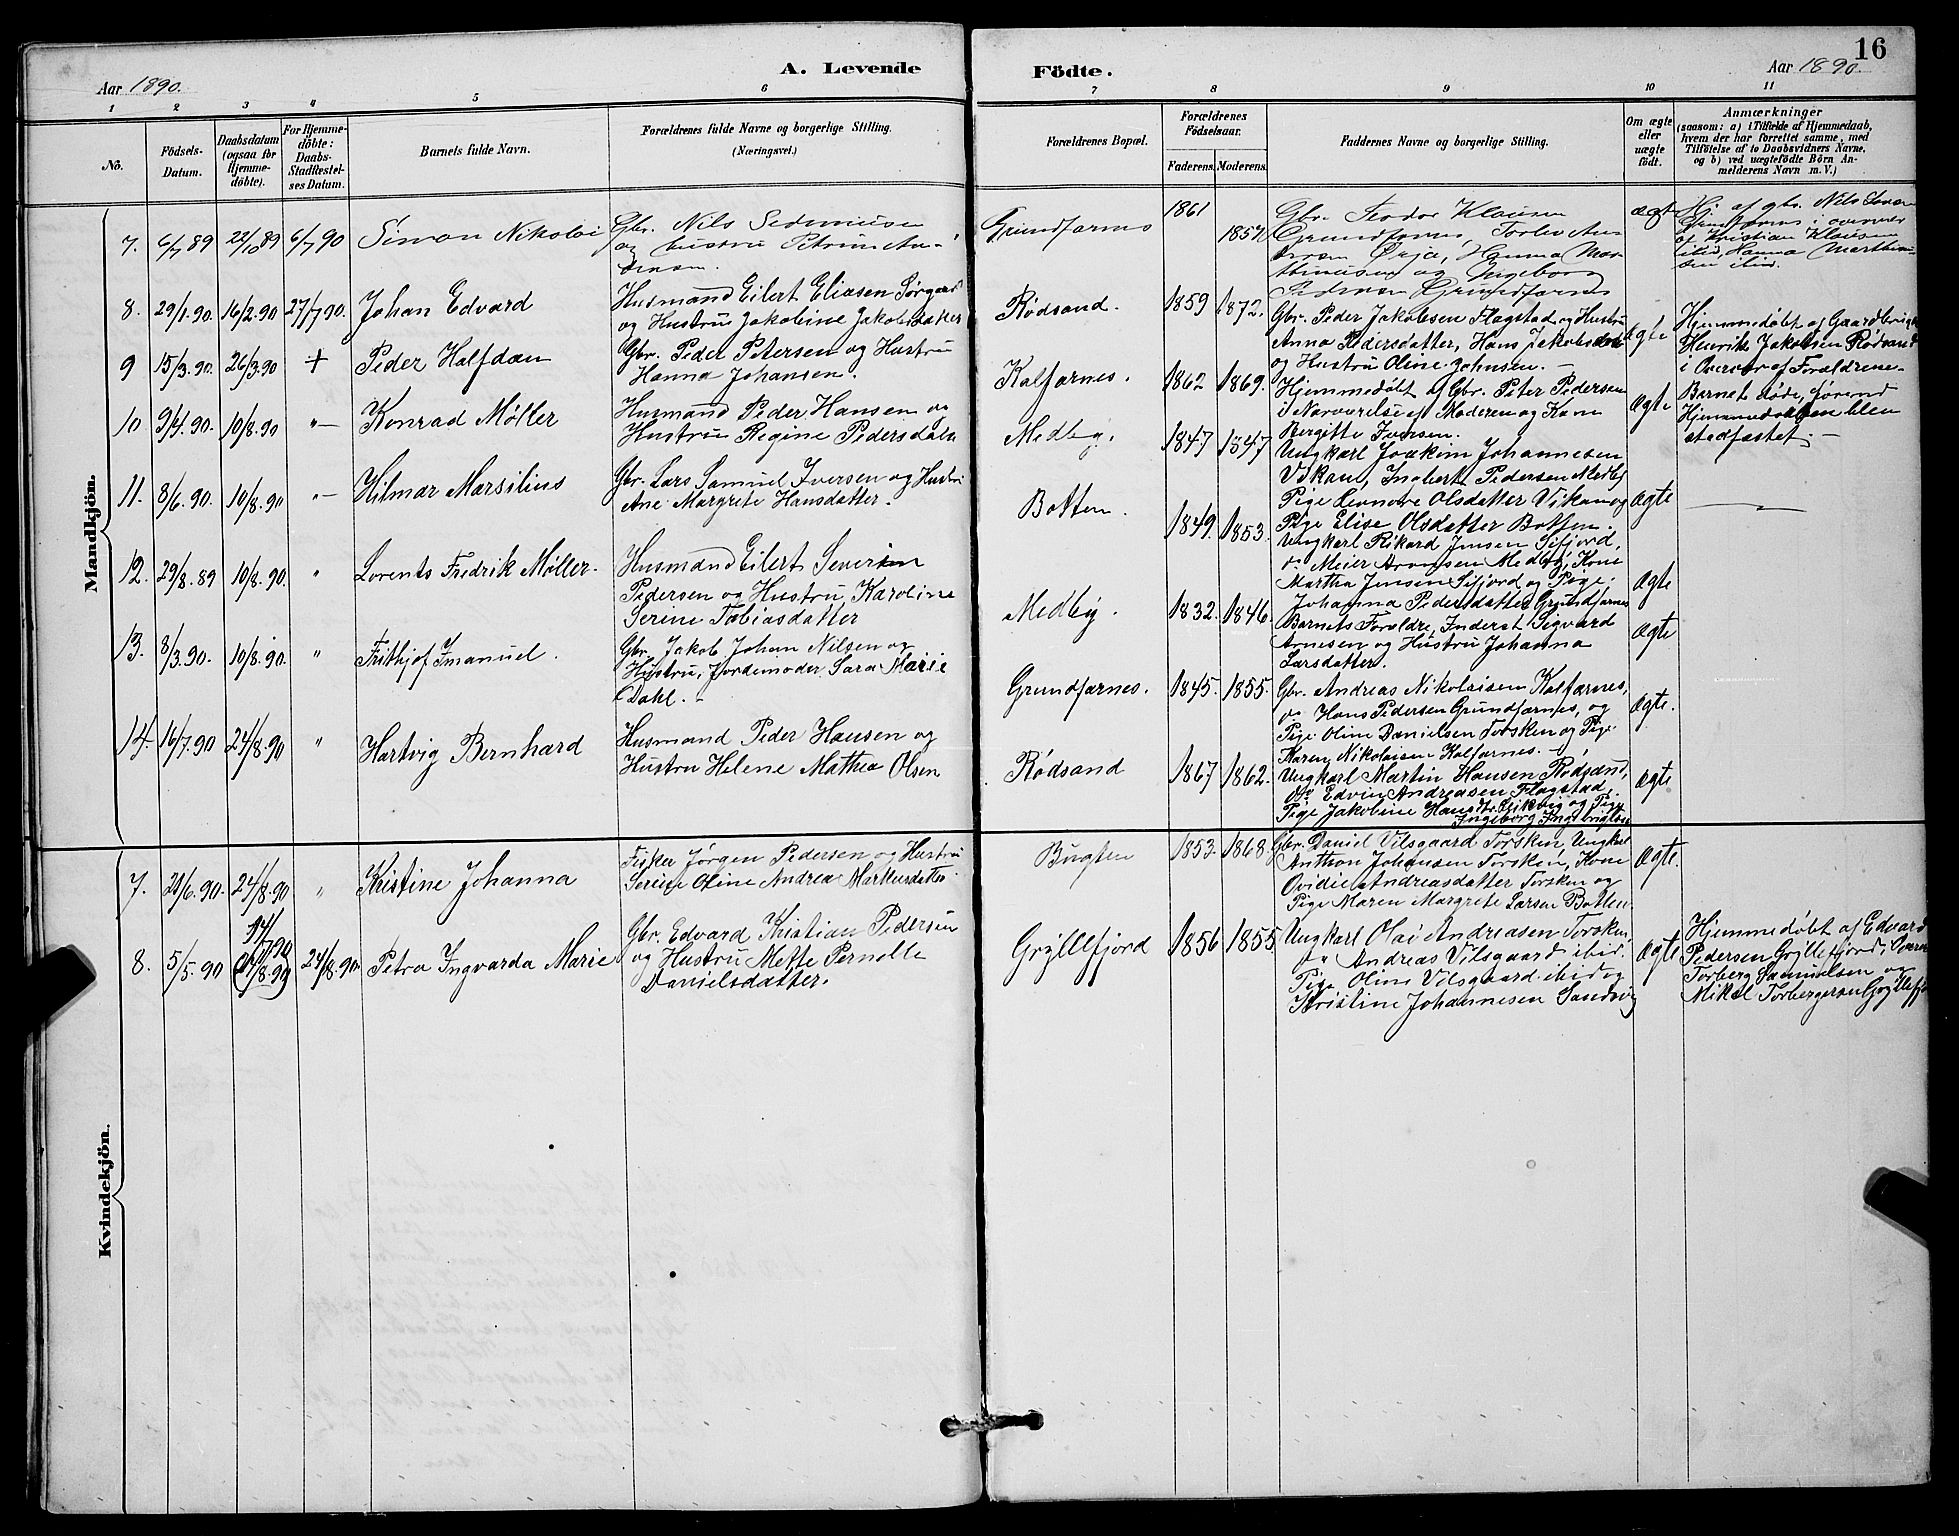 16
A. Levende Födte.
Aar 1890.
Aar 1890.
1 2 3 4 5 6 7 8 9 10 11
No.
Födsels-Datum.
Daabsdatum (ogsaa for Hjemmedöbte).
For Hjemmedöbte: Daabs-Stadfæstelses Datum.
Barnets fulde Navn.
Forældrenes fulde Navne og borgerlige Stilling.
(Næringsvei.)
Forældrenes Bopæl.
Forældrenes Födselsaar.
Faderens. Moderens.
Faddernes Navne og borgerlige Stilling.
Om ægte eller uægte födt.
Anmærkninger
(saasom: a) i Tilfælde af Hjemmedaab,
hvem der har forrettet samme, med
Tilföielse af to Daabsvidners Navne,
og b) ved uægtefödte Börn Anmelderens Navn m. V.)
Mandkjön.
7. 6/7 89 22/1089 6/7 90 Simon Nikolai
Gbr. Nils
og Hustru Petrine
Grundfarnes
1861
Gbr. Teodor Klausen
Grundfarnes, Torlev
Hanna
og Ingeborg
Pedersen Grundfarnes
ægte
Hj. af gbr. Nils
Grundfarnes i overvær
af Kristian Klausen
ibid, Hanna
ibid.
8. 29/1.90. 16/2.90 27/7 90. Johan Edvard
Husmand Eilert Eliasen Sørgaard
og Hustru Jakobine Jakobsdatter
Rødsand.
1859 1872.
Gbr. Peder Jakobsen Flagstad og Hustru
Anna Pedersdatter, Hans Jakobsen
og Hustru Oline Johnsen.
Ægte
Hjemmedøbt af Gaardbruger
Henrik Jakobsen Rødsand
i Overvær af Forældrene
9 15/3.90. 26/3.90 + Peder Halfdan
Gbr. Peder Petersen og Hustru
Hanna Johansen.
Kalfarnes.
1862 1869.
Hjemmedøbt af Gbr. Peter Pedersen
i Nærværelse af Moderen og Kone
Bergitte Iversen.
Ægte
Barnet døde, førend
Hjemmedaaben blev
stadfæstet. –
10 9/4.90. 10/8.90 "– Konrad Møller
Husmand Peder Hansen og
Hustru Regine Pedersdatter
Medby.
1847 1847
Ungkarl Joakim Johannesen
Vikan, Ingbert Pedersen Medby
Pige Leonore Olsdatter Vikan og
Pige Elise Olsdatter Botten.
Ægte
11. 8/6.90. 10/8.90 "– Hilmar Marsilius
Gbr. Lars Samuel Iversen og Hustru
Ane Margrete Hansdatter.
Botten.
1849. 1853.
Ungkarl Rikard Jensen Sifjord,
do Meier Aronsen Medby, Kone
Martha Jensen Sifjord og Pige
Johanna Pedersdatter Grundfarnes
Ægte
12. 29/8.89 10/8.90. " Lorents Fredrik Møller.
Husmand Eilert Severin
Pedersen og Hustru Karoline
Serine Tobiasdatter
Medby.
1832. 1846.
Barnets Forældre, Inderst Sigvard
Arnesen og Hustru Johanna
Larsdatter.
Ægte
13. 8/3.90. 10/8.90. " Frithjof Imanuel.
Gbr. Jakob Johan Nilsen og
Hustru, Jordemoder Sara Marie
Dahl. –
Grundfarnes.
1845. 1855.
Gbr. Andreas Nikolaisen Kalfarnes,
do Hans Pedersen Grundfarnes, og
Pige Oline Danielsen Torsken og Pige
Karen Nikolaisen Kalfarnes. –
Ægte.
14. 16/7.90 24/8.90 " Hartvig Bernhard
Husmand Peder Hansen og
Hustru Helene Mathea Olsen
Rødsand
1867 1862.
Ungkarl Martin Hansen Rødsand,
do Edvin Andreasen Flagstad,
Pige Jakobine og Pige
Ingeborg
Ægte
Kvindekjön.
7. 21/6.90. 24/8.90 " Kristine Johanna
Fisker Jørgen Pedersen og Hustru
Serine Oline Andrea Markusdatter.
Bugten
1853. 1868.
Gbr. Daniel Vilsgaard Torsken, Ungkarl
Anthon Johansen Torsken, Kone
Ovidie Andreasdatter Torsken og
Pige Maren Margrete Larsen Botten
Ægte.
8. 5/5.90 24/8.90. Petra Ingvarda Marie
Gbr. Edvard Kristian Pedersen
og Hustru Mette Pernelle
Danielsdatter.
Gryllefjord
1856 1855
Ungkarl Olai Andreasen Torsken,
" Andreas Vilsgaard ibid.
Pige Oline Vilsgaard ibid og
Kristine Johannesen Sandvig
Ægte
Hjemmedøbt af Edvard
Pedersen Gryllefjord,
Torberg Samuelsen og
Mikal Torbergsen